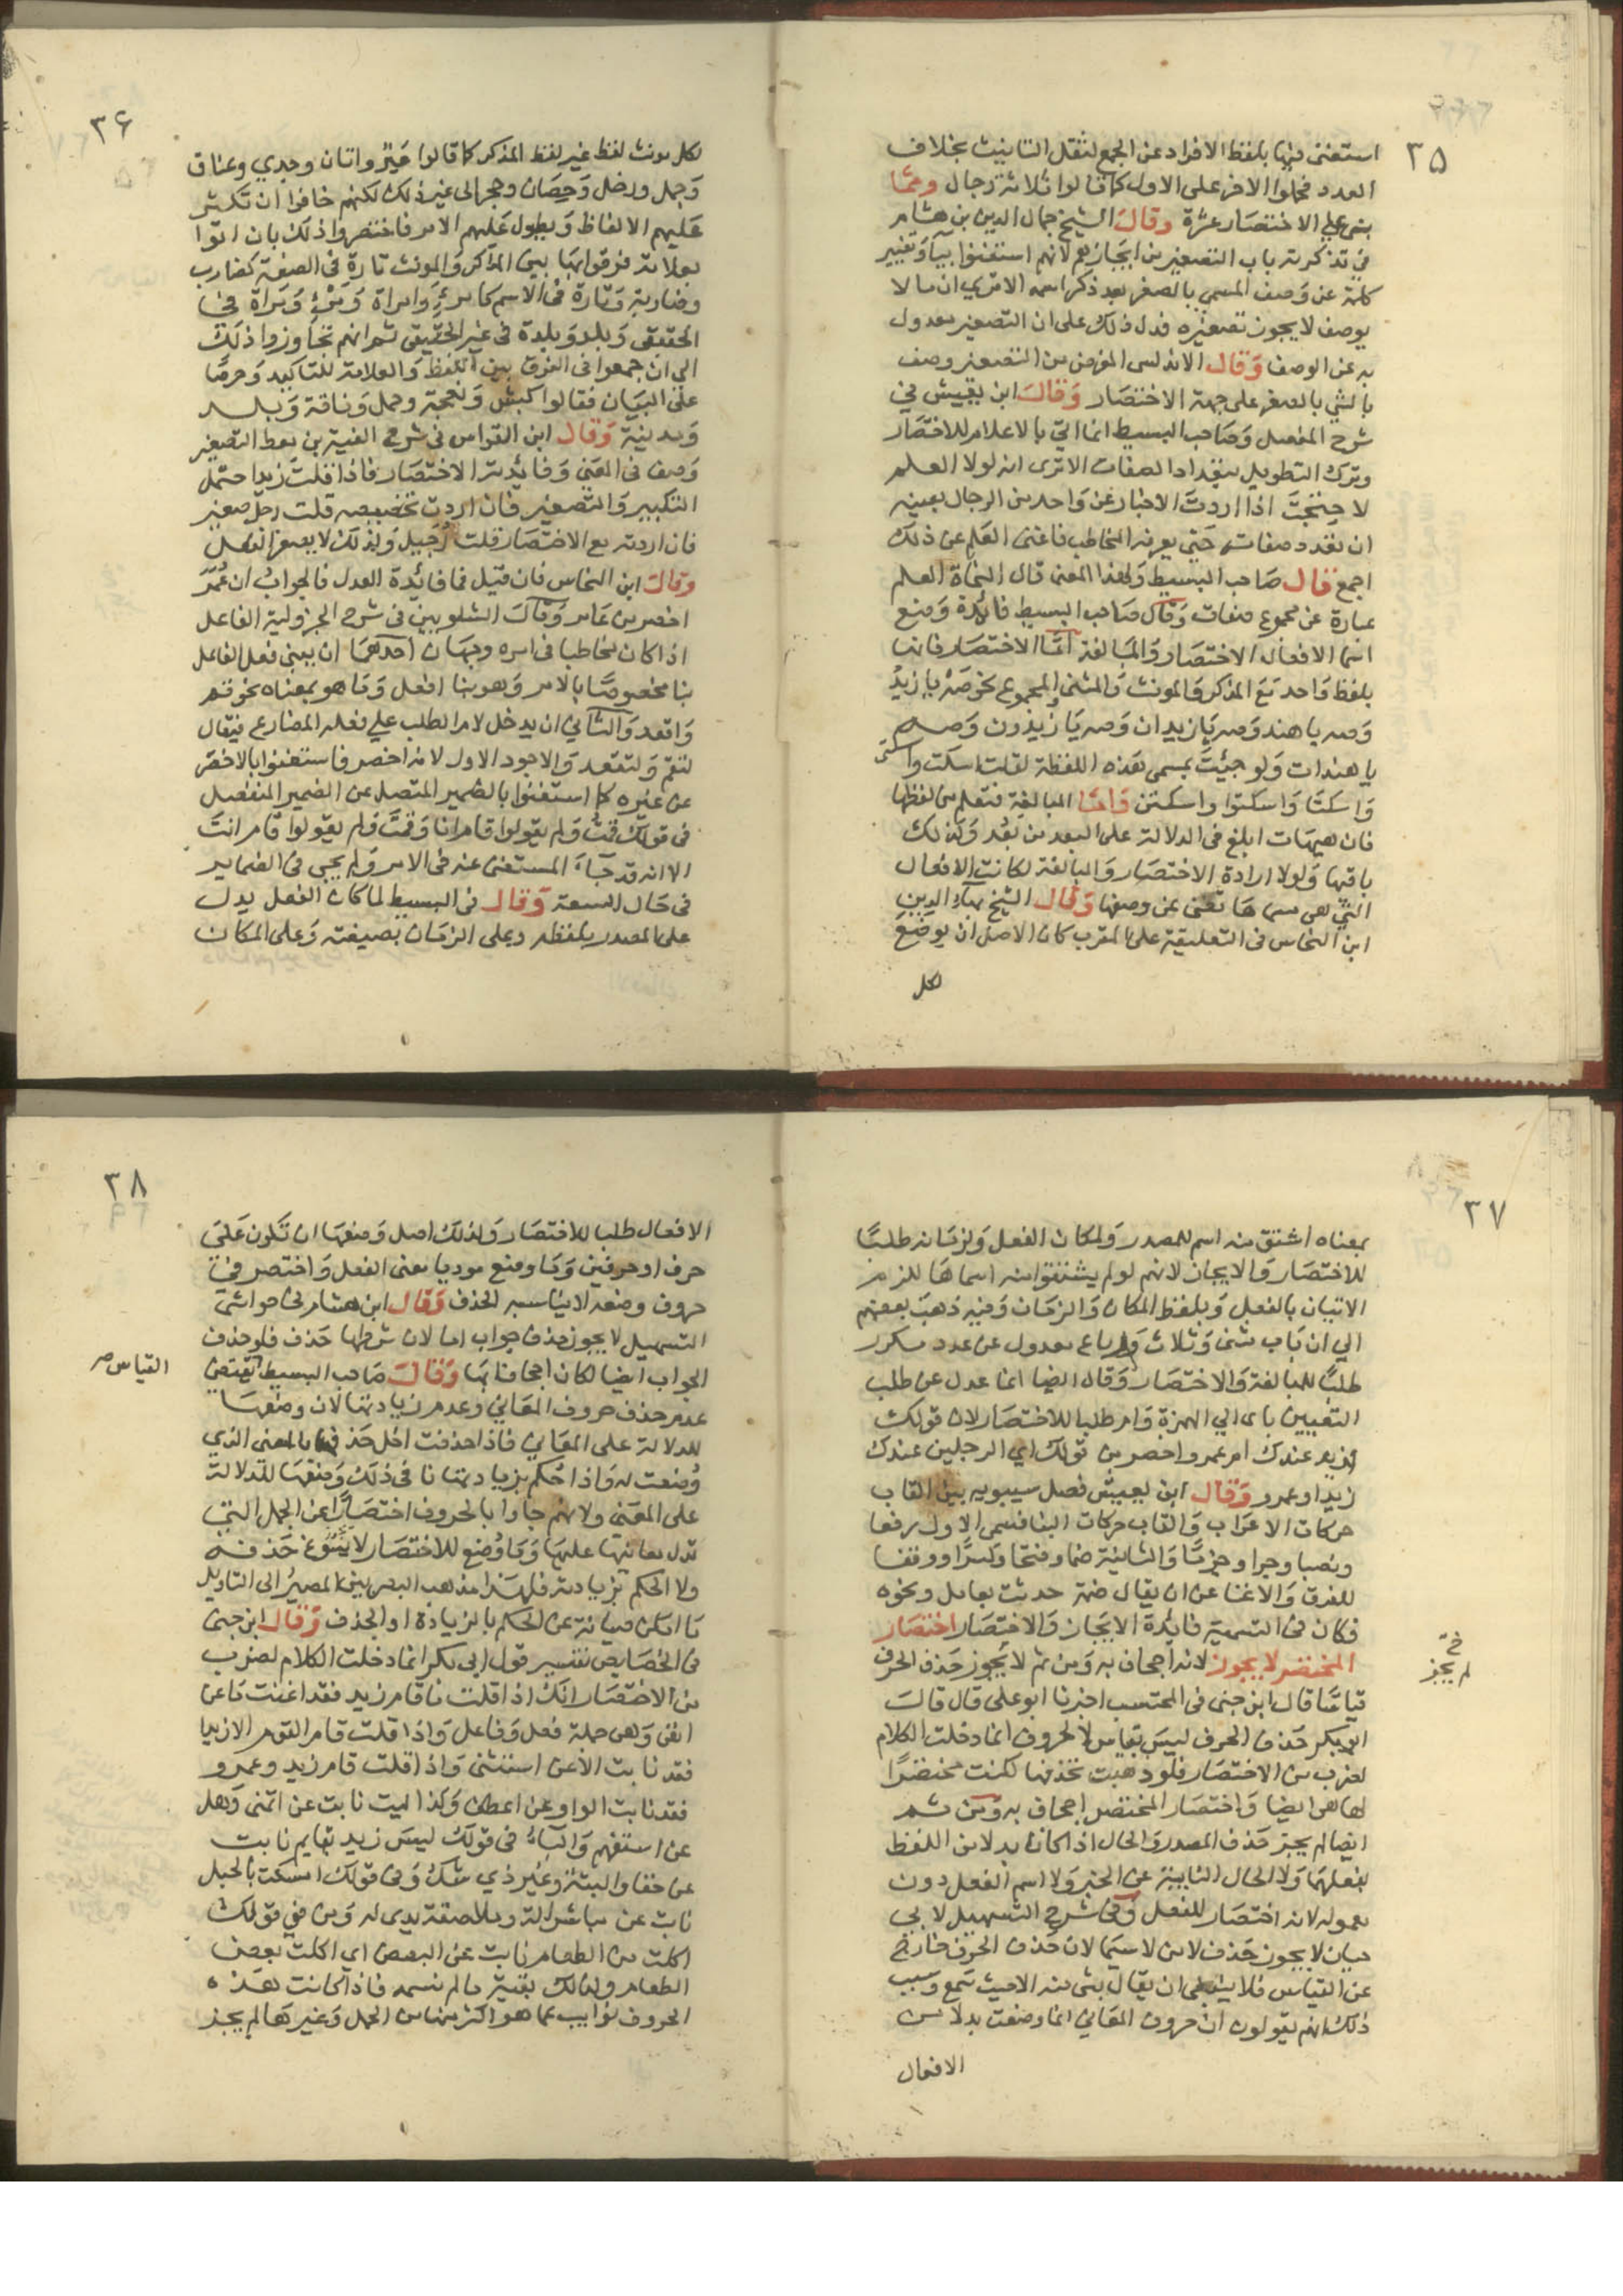 ٣٥
استغنى فيها بلفظ الافراد عن الجمع لثقل التانيث بخلاف
العدد فحملوا الاخر على الاول كما قالوا ثلاثة رجال ومما
بنى على الاختصار عشرة وقال الشيخ جمال الدين بن هشام
في تذكرته باب التصغير من ايجازهم لانهم استغنوا بياء وتغيير
كلمة عن وصف المسمى بالصغر بعد ذكر اسمه الا ترى ان ما لا
يوصف لا يجوز تصغيره فدل ذلك على ان التصغير معدول
به عن الوصف وقال الاندلسى الغرض من التصغير وصف
الشي بالصغر على جهة الاختصار وقال ابن يعيش في
شرح المفصل وصاحب البسيط انما اتي بالاعلام للاختصار
وترك التطويل بتعداد الصفات الا ترى انه لولا العلم
لاحتجت اذا اردت الاخبار عن واحد من الرجال بعينه
ان تعدد صفاته حتى يعرفه المخاطب فاغنى العلم عن ذلك
اجمع قال صاحب البسيط ولهذا المعنى قال النحاة العلم
عبارة عن مجموع صفات وقال صاحب البسيط فائدة وضع
اسما الافعال الاختصار والمبالغة اما الاختصار فانها
بلفظ واحد مع المذكر والمونث والمثنى والمجموع نحو صه يا زيد
وصه يا هند وصه يا زيدان وصه يا زيدون وصه
يا هندات ولو جيئت بمسمى هذه اللفظة لقلت اسكت واسكتى
واسكتا واسكتوا واسكتن واما المبالغة فتعلم من لفظها
فان هيهات ابلغ في الدلالة على البعد من بعد وكذلك
باقيها ولولا ارادة الاختصار والمبالغة لكانت الافعال
التي هى مسماها تغنى عن وضعها وقال الشيخ بهاء الدين
ابن النحاس في التعليقة على المقرب كان الاصل ان يوضع
لكل
٣٦
لكل مونث لفظ غير لفظ المذكر كما قالوا عير واتان وجدي وعناق
وحمل ورخل وحصان وحجر الى غير ذلك لكنهم خافوا ان تكثر
عليهم الالفاظ ويطول عليهم الامر فاختصروا ذلك بان اتوا
بعلامة فرقوا بها بين المذكر والمونث تارة في الصفة كضارب
وضاربة وتارة في الاسم كامرء وامراة ومرء ومراة في
الحقيقى وبلد وبلدة في غير الحقيقي ثم انهم تجاوزوا ذلك
الى ان جمعوا في الفرق بين اللفظ والعلامة للتاكيد وحرصا
على البيان فقالوا كبش ونعجة وجمل وناقة وبلد
ومدينة وقال ابن القواس في شرح الفية بن معط التصغير
وصف في المعنى وفائدته الاختصار فاذا قلت زيد احتمل
التكبير والتصغير فان اردت تخصيصه قلت رجل صغير
فان اردته مع الاختصار قلت رجيل ولذلك لا يصغر الفعل
وقال ابن النحاس فان قيل فما فائدة العدل فالجواب ان عمر
اخصر من عامر وقال الشلوبين في شرح الجزولية الفاعل
اذا كان مخاطبا في امره وجهان احدهما ان يبنى فعل الفاعل
بنا مخصوصا بالامر وهو بنا افعل وما هو بمعناه نحو قم
واقعد والثاني ان يدخل لام الطلب على فعله المضارع فيقال
لتقم ولتقعد والاجود الاول لانه اخصر فاستغنوا بالاخصر
عن غيره كما استغنوا بالضمير المتصل عن الضمير المنفصل
في قولك قمت ولم يقولوا قام انا وقمت ولم يقولوا قام انت
الا انه قد جاء المستغنى عنه في الامر ولم يجى في الضماير
في حال السعة وقال في البسيط لما كان الفعل يدل
على المصدر بلفظه وعلى الزمان بصيغته وعلى المكان
٣٧
بمعناه اشتق منه اسم للمصدر ولمكان الفعل ولزمانه طلبا
للاختصار والايجاز لانهم لو لم يشتقوا منه اسماها للزم
الاتيان بالفعل وبلفظ المكان والزمان وفيه ذهب بعضهم
الي ان باب مثنى وثلاث ورباع معدول عن عدد مكرر
طلبا للمبالغة والاختصار وقال ايضا انما عدل عن طلب
التعيين باى الى الهمزة وام طلبا للاختصار لان قولك
ازيد عندك ام عمرو اخصر من قولك اي الرجلين عندك
زيد او عمرو وقال ابن يعيش فصل سيبويه بين القاب
حركات الاعراب والقاب حركات البنا فسمى الاول رفعا
ونصبا وجرا وجزما والثانية ضما وفتحا وكسرا ووقفا
للفرق والاغنا عن ان يقال ضمة حدثت بعامل ونحوه
فكان في التسمية فائدة الايجاز والاختصار اختصار
المختصر لا يجوز لانه اجحاف به ومن ثم لا يجوز حذف الحرف
قياسا قال ابن جنى في المحتسب اخبرنا ابو على قال قال
ابو بكر حذف الحرف ليس بقياس لان الحروف انما دخلت الكلام
لضرب من الاختصار فلو ذهبت تحذفها لكنت مختصرا
لها هى ايضا واختصار المختصر اجحاف به ومن ثم
ايضا لم يجز حذف المصدر والحال اذا كانا بدلا من اللفظ
بفعلهما ولا الحال النايبة عن الخبر ولا اسم الفعل دون
معموله لانه اختصار للفعل وفي شرح التسهيل لابي
حيان لا يجوز حذف لا من لا سيما لان حذف الحرف خارج
عن القياس فلا ينبغى ان يقال بشى منه الا حيث سمع وسبب
ذلك انهم يقولون ان حروف المعاني انما وضعت بدلا من
الافعال
خ
لم يجز
٣٨
الافعال طلبا للاختصار ولذلك اصل وضعها ان تكون على
حرف او حرفين وما وضع موديا معنى الفعل واختصر في
حروف وضعه لا يناسبه الحذف وقال ابن هشام في حواشى
التسهيل لا يجوز حذف جواب اما لان شرطها حذف فلو حذف
الجواب ايضا لكان اجحافا بها وقال صاحب البسيط يقتضى
القياس صح
عدم حذف حروف المعاني وعدم زيادتها لان وضعها
للدلالة على المعاني فاذا حذفت اخل حذفها بالمعنى الذي
وضعت له واذا حكم بزيادتها نافى ذلك وضعها للدلالة
على المعنى ولانهم جاوا بالحروف اختصارا عن الجمل التى
تدل معانيها عليها وما وضع للاختصار لا يسوغ حذفه
ولا الحكم بزيادته فلهذا مذهب البصريين المصير الى التاويل
ما امكن صيانة عن الحكم بالزيادة او الحذف وقال ابن جنى
في الخصايص تفسير قول ابى بكر انما دخلت الكلام لضرب
من الاختصار انك اذا قلت ما قام زيد فقد اغنت ما عن
انفى وهى جملة فعل وفاعل واذا قلت قام القوم الا زيدا
فقد نابت الا عن استثنى واذا قلت قام زيد وعمرو
فقد نابت الواو عن اعطف وكذا ليت نابت عن اتمنى وهل
عن استفهم والباء في قولك ليس زيد بقايم نابت
عن حقا والبتة وغير ذي شك وفي قولك امسكت بالحبل
نابت عن مباشرا له وملاصقة يدى له ومن في قولك
اكلت من الطعام نابت عن البعض اي اكلت بعض
الطعام وكذلك بقية ما لم نسمه فاذا كانت هذه
الحروف نوايب عما هو اكثر منها من الجمل وغيرها لم يجز